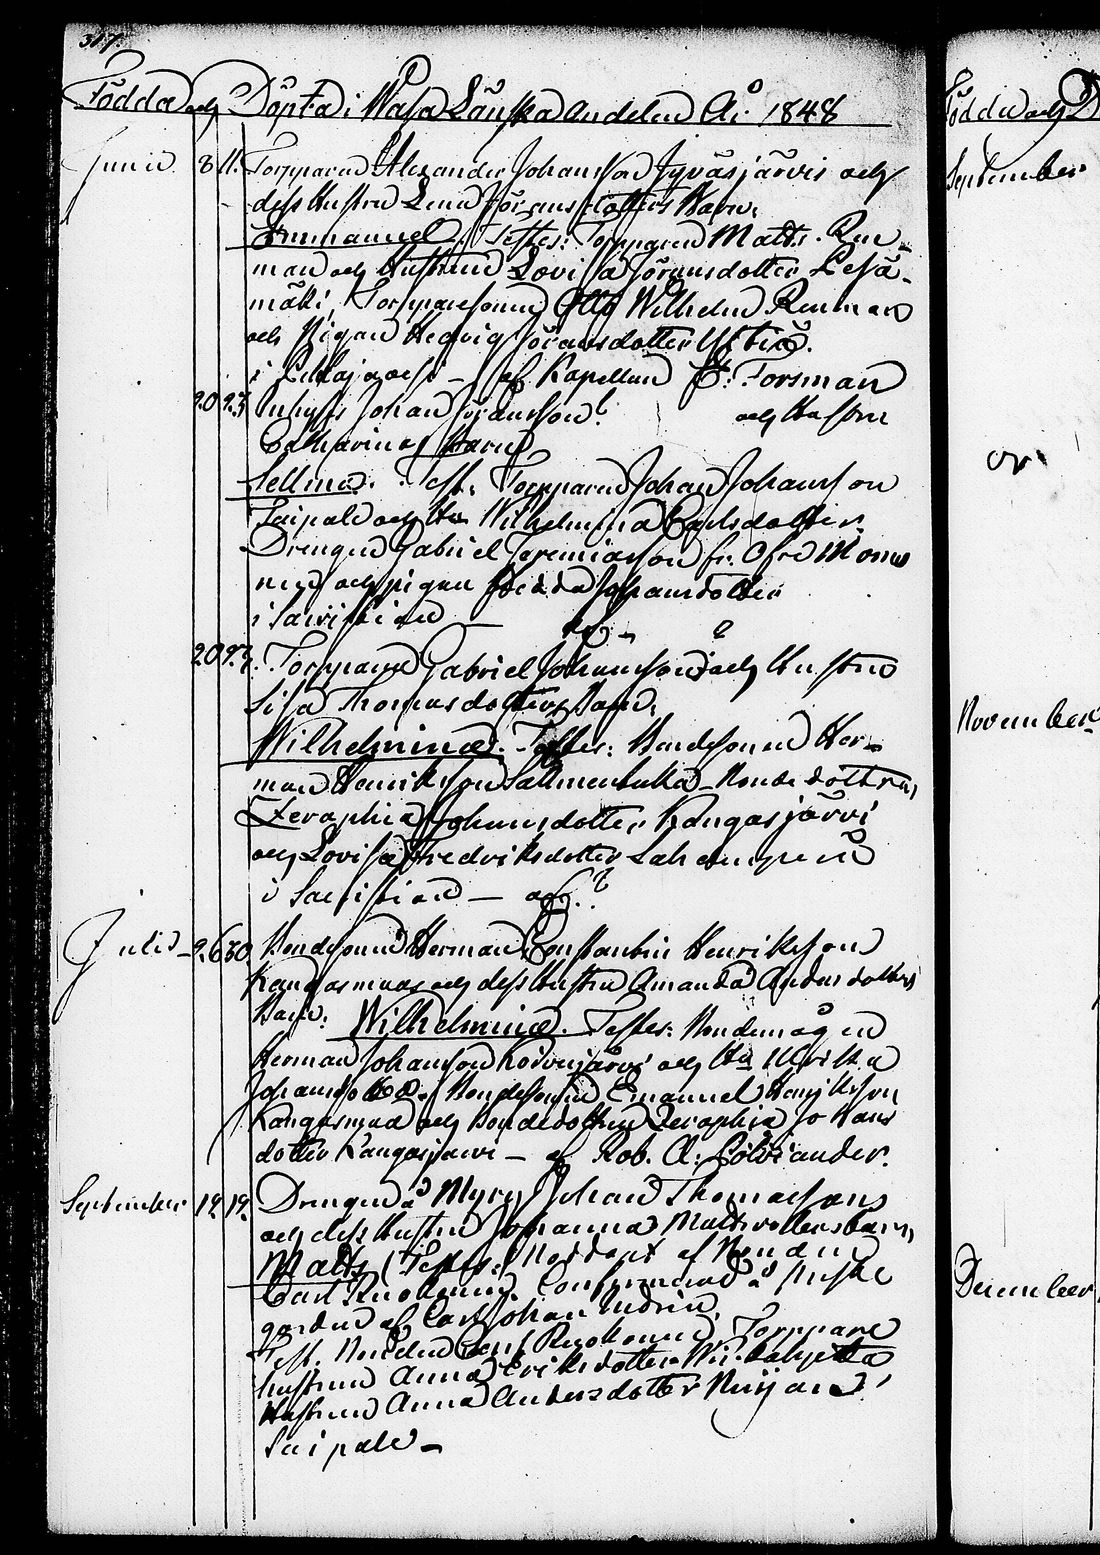 317.
Födda och Döpta i Wasa Länska andelen År 1848
Junii 8 11. Torpparen Alexander Johansson Jyväsjärvis och
dess Hustru Lena Jöransdotters Barn,
Emmanuel. Testes: Torpparen Matts Ren-
man och Hustrun Lovisa Jöransdotter Lesä-
mäki, Torpparesonen Otto Wilhelm Renman
och Pigan Hedvig Jöransdotter
i af Kapellan E: Forsman
20 23 Inhyses Johan Jöransson? och Hustru
Catharinas Barn,
Sellma. Test. Torpparen Johan Johansson
Taipale och Hu Wilhelmina Carlsdotter,
Drengen Gabriel Jeremiasson fr.
och pigan Hedda Johansdotter
i Sacristian
20 23. Torpparen Gabriel Johansson och Hustru
Lisa Thomasdotters Barn,
Wilhelmina. Testes: Bondesonen Her-
man Henriksson Bondedöttrar,
Zeraphia Johansdotter Kangasjärvi
och Lovisa Fredriksdotter
i Sacristian — af ?
Julii 26 30 Bondesonen Herman Constantin Henriksson
Kangasmaas och dess Hustru Amanda Andersdotters
Barn: Wilhelmina. Testes: Bondemågen
Herman Johansson Koivujärvi och Hu Ulrika
Johansdotter, Bondesonen Emanuel Henriksson
Kangasmaa och Bondedottren Zeraphia Johans
dotter Kangasjärvi — af Rob. A:
September 12 19. Drengen å Myry Johan Thomassons
och dess Hustru Johanna Mattsdotters barn,
Matts, Testes: Nöddöpt af Bonden
Carl Confirmerad å
gården af Carl Johan
Test. Bonden Carl Torppare
hustrun Anna Eriksdotter
Hustrun Anna Andersdotter
Taipale —
Födda och D
September
or
November
December